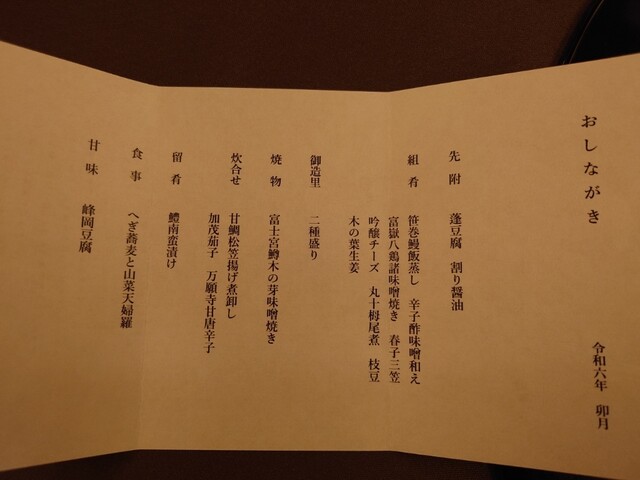 おしながき
令和六年　卯月
先附　蓬豆腐　割り醤油
組肴　笹巻鰻飯蒸し　辛子酢味噌和え
富嶽八鶏諸味噌焼き　春子三笠
吟醸チーズ　丸十栂尾煮　枝豆
木の葉生姜
御造里　二種盛り
焼物　富士宮鱒木の芽味噌焼き
炊合せ　甘鯛松笠揚げ煮卸し
加茂茄子　万願寺甘唐辛子
留肴　鱧南蛮漬け
食事　へぎ蕎麦と山菜天婦羅
甘味　峰岡豆腐